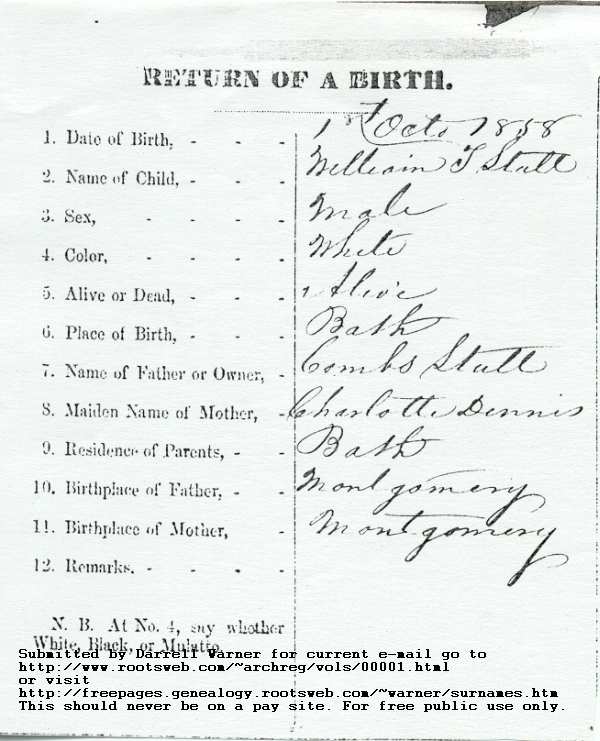 RETURN OF A BIRTH.
1. Date of Birth, - - - 1st Octo 1858
2. Name of Child, - - - William T Stull
3. Sex, - - - - Male
4. Color, - - - - White
5. Alive or Dead, - - - Alive
6. Place of Birth, - - - Bath
7. Name of Father or Owner, - Combs Stull
8. Maiden Name of Mother, - Charlotte Dennis
9. Residence of Parents, - - Bath
10. Birthplace of Father, - - Montgomery
11. Birthplace of Mother, - Montgomery
12. Remarks. - - - -
N. B. At No. 4, say whether
White, Black, or Mulatto.
Submitted by Darrell Warner for current e-mail go to
http://www.rootsweb.com/~archreg/vols/00001.html
or visit
http://freepages.genealogy.rootsweb.com/~warner/surnames.htm
This should never be on a pay site. For free public use only.